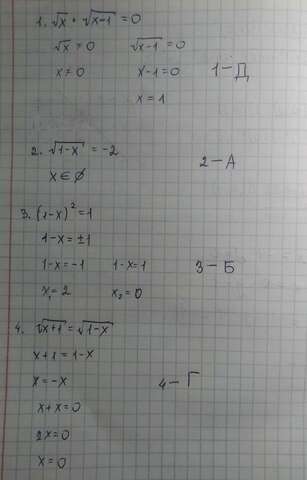 1. √x · √x-1 = 0
√x = 0 √x-1 = 0
x = 0 x-1=0 1-Д
x = 1
2. √1-x = -2
x ∈ ∅ 2-А
3. (1-x)² = 1
1-x = ±1
1-x = -1 1-x = 1 3-Б
x₁ = 2 x₂ = 0
4. √x+1 = √1-x
x+1 = 1-x
x = -x 4-Г
x+x = 0
2x = 0
x = 0